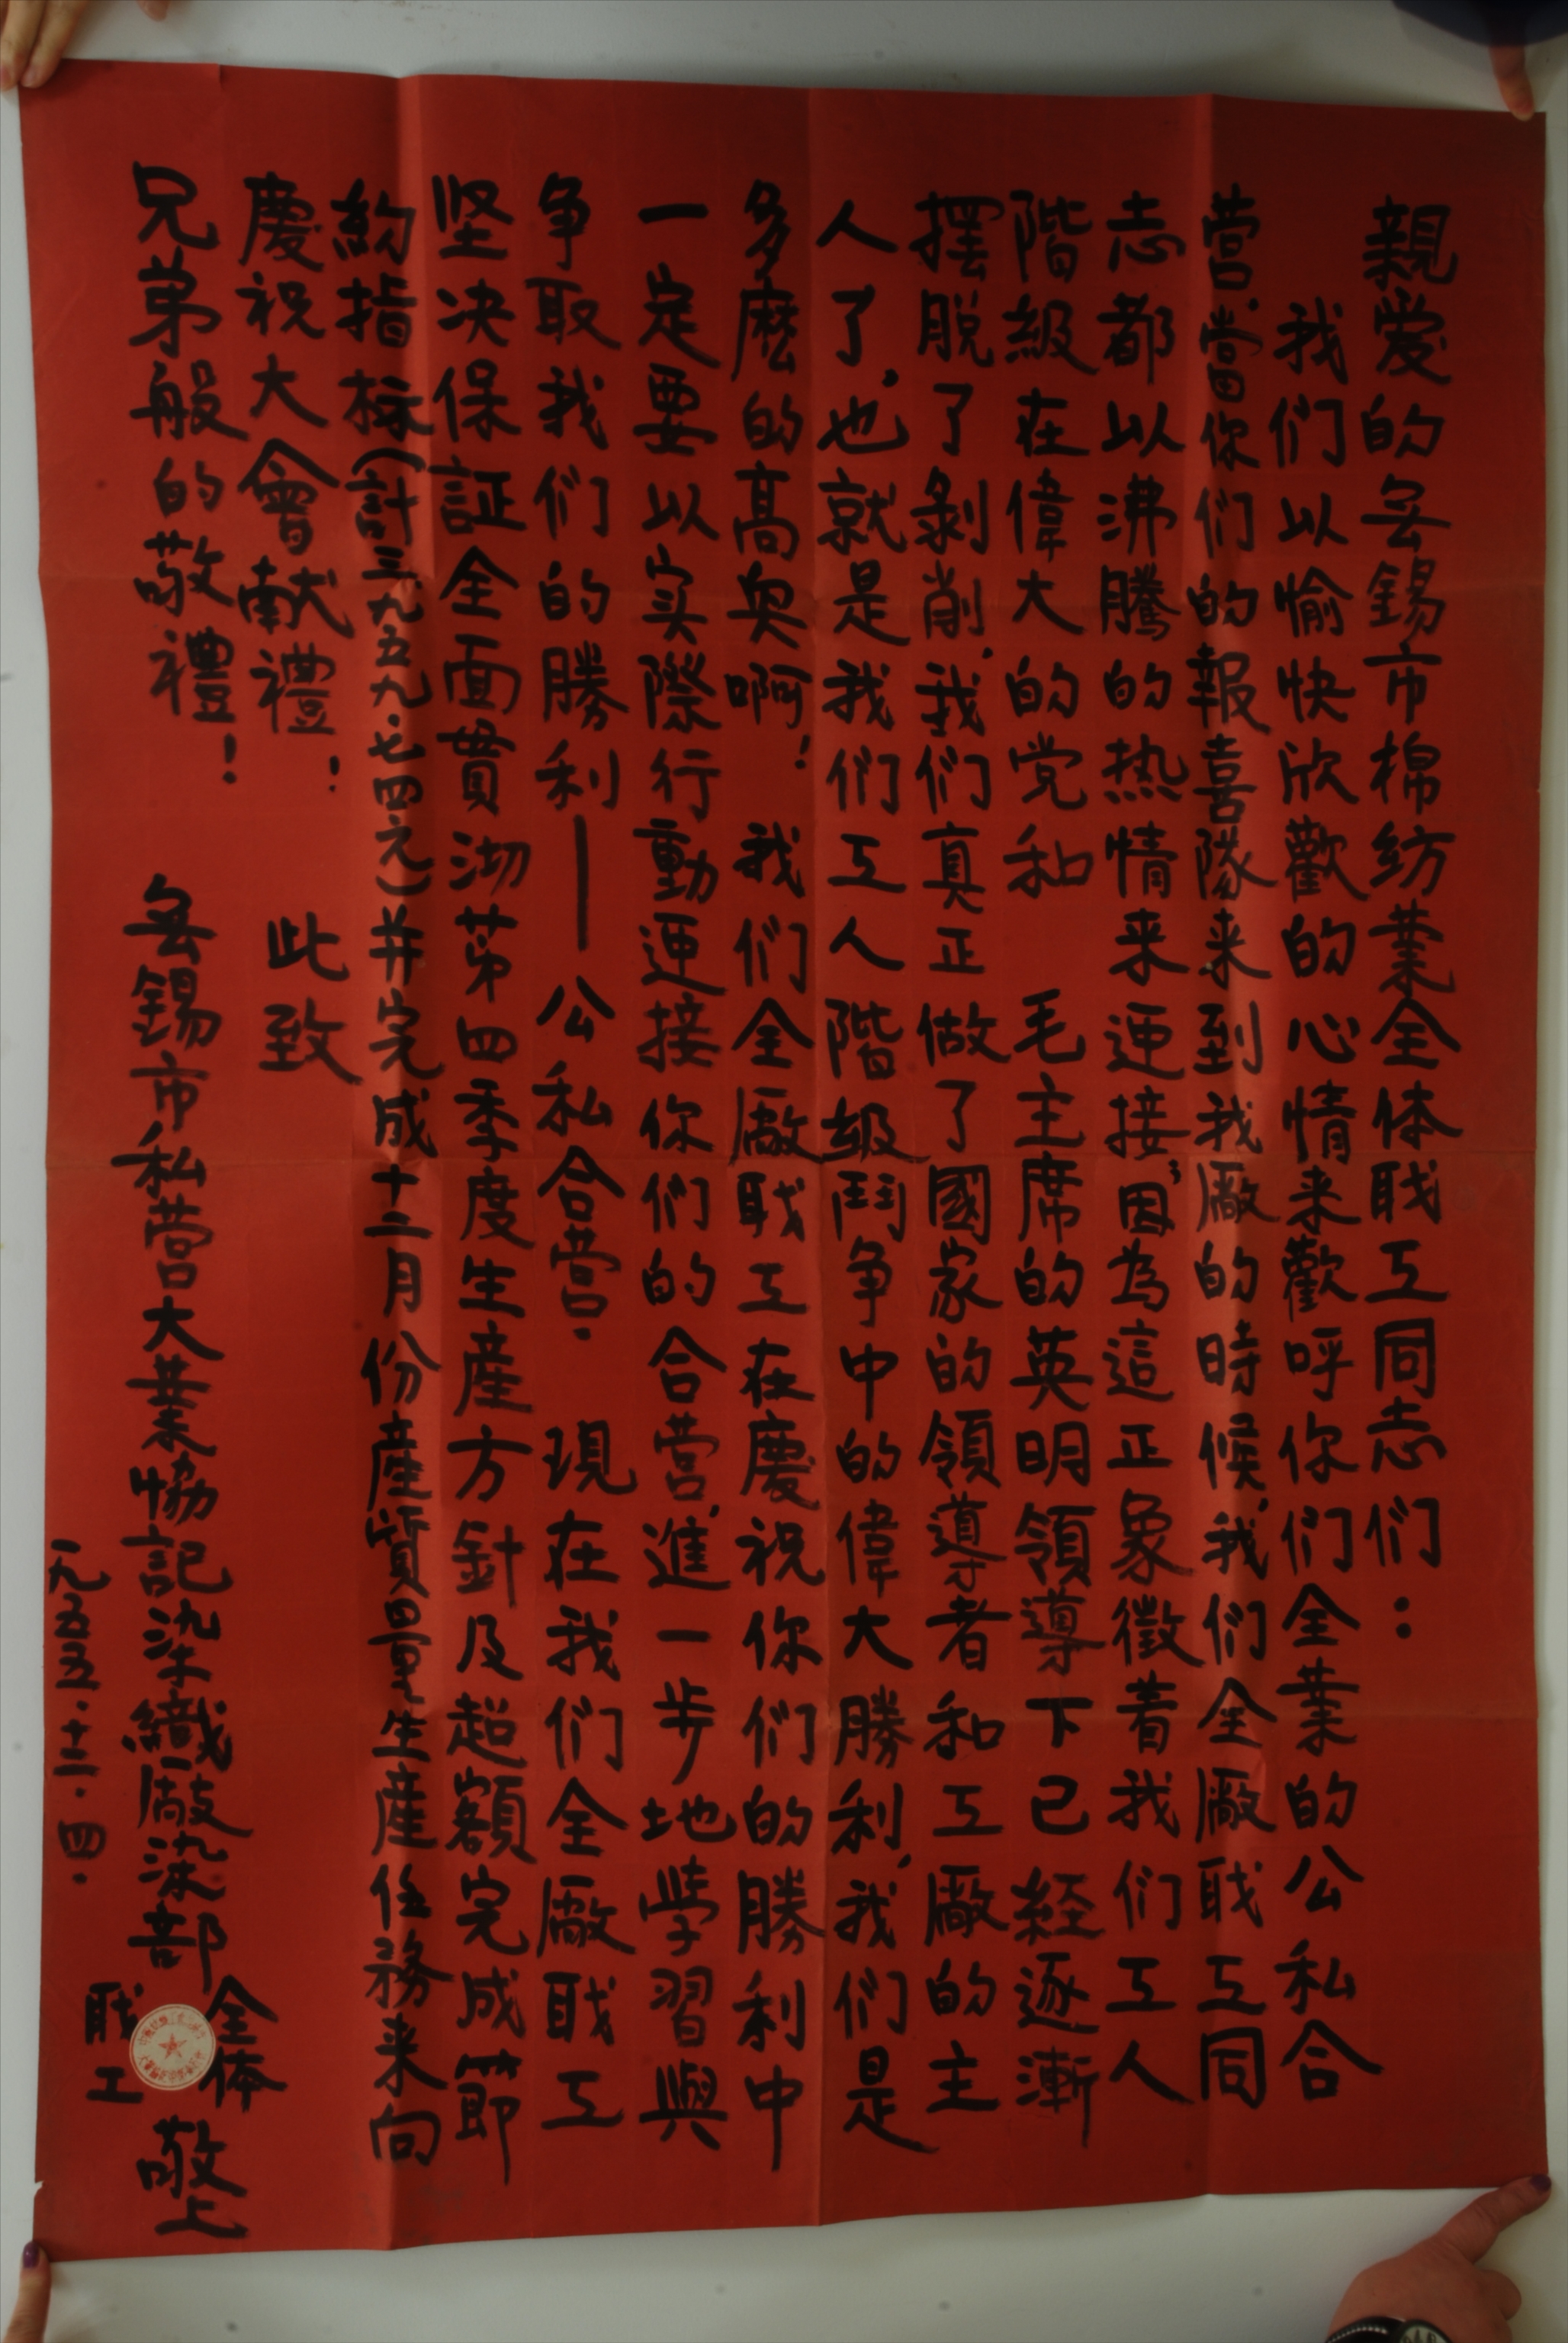 親爱的무錫市棉纺業全体职工同志们：
我们以愉快欣歡的心情来歡呼你们全業的公私合
营，當你们的報喜隊来到我廠的時候，我们全廠职工同
志都以沸騰的热情来迎接，因為這正象徵着我们工人
階級在偉大的党和 毛主席的英明領導下已経逐漸
摆脱了剥削，我们真正做了國家的領導者和工廠的主
人了，也就是我们工人階级鬥争中的偉大勝利，我们是
多麽的高興啊！ 我们全廠职工在慶祝你们的勝利中
一定要以实際行動迎接你们的合营，進一步地学習與
争取我们的勝利——公私合营. 現在我们全廠职工
坚决保証全面貫沏第四季度生産方針及超額完成節
約指标（計三九五九.七四元）并完成十二月份産質量生産任務来向
慶祝大會献禮！ 此致
兄弟般的敬禮！
무錫市私营大業協記染織廠染部全体职工敬上
一九五五.十二.四.